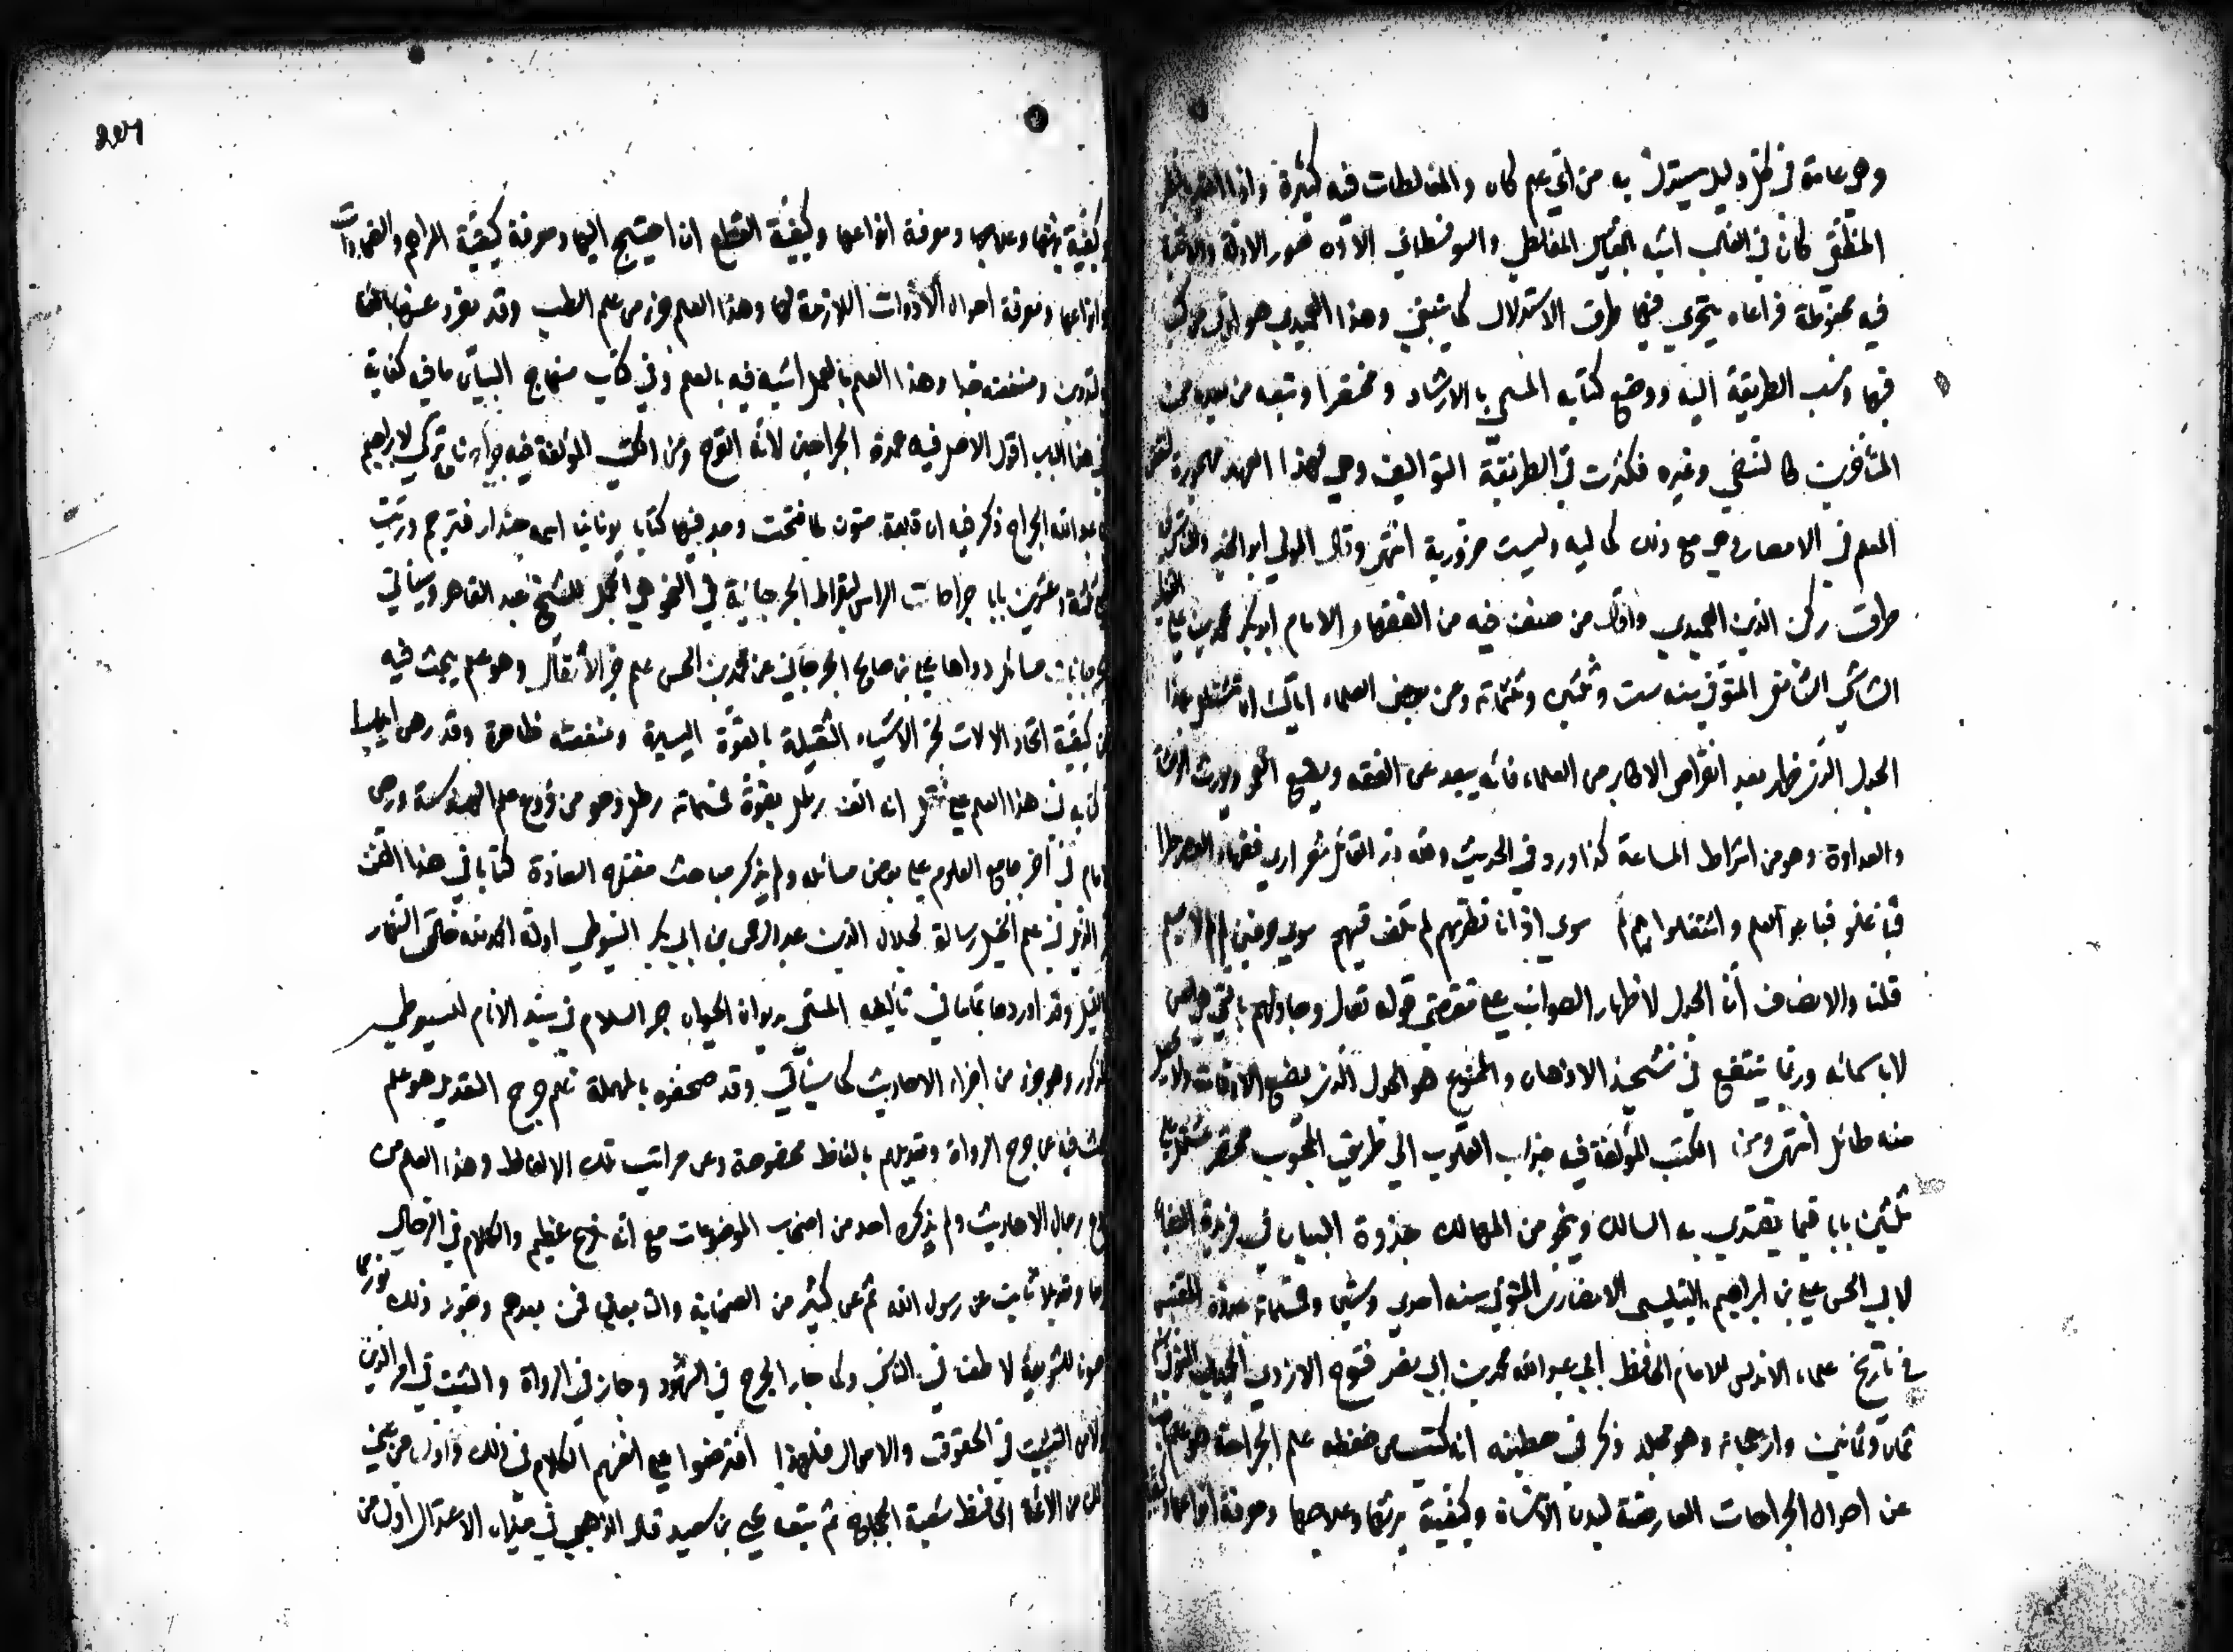 وهي عامة في كل دليل يستدل به من اي علم كان والمغالطات فيه كثيرة واذا اعتبر بالنظر
المنطقي كان في الغالب اشبه بالقياس المغالطي والسوفسطائي الا ان صور الادلة والاقيسة
فيه محفوظة مراعاه يتحرى فيها طرق الاستدلال كما ينبغي وهذا العميدي هو اول من كتب
فيها ونسب الطريقة اليه ووضع كتابه المسمى بالارشاد مختصرا وتبعه من بعده من
المتأخرين كالنسفي وغيره فكثرت في الطريقة التواليف وهي لهذا العهد مهجورة لنقص
العلم في الامصار وهي مع ذلك كماليه وليست ضرورية انتهى وقال المولى ابو الخير وللناس فيه
طرق ركن الدين العميدي واول من صنف فيه من الفقهاء الامام ابو بكر محمد بن علي القفال
الشاشي الشافعي المتوفى سنه ست وثلثين وثلثمائة وعن بعض العلماء اياك ان تشتغل بهذا
الجدل الذي ظهر بعد انقراض الاكابر من العلماء فانه يبعد عن الفقه ويضيع العمر ويورث الوحشة
والعداوة وهو من اشراط الساعة كذا ورد في الحديث ولله در القائل شعر ارى فقهاء العصر طرا
قلنا والانصاف ان الجدل لاظهار الصواب على مقتضى قوله تعالى وجادلهم بالتي هي احسن
لا باس به وربما ينتفع في تشحيذ الاذهان والممنوع هو الجدل الذي يضيع الاوقات ولا يحصل
منه طائل انتهى ومن الكتب المؤلفة فيه جذاب القلوب الى طريق المحبوب مختصر مشتمل على
ثلثين بابا فيما يقتدي به السالك وينجو من المهالك جذوة البيان في فريدة العقيان
لابي الحسن علي بن ابراهيم البلنسي الانصاري المتوفى سنه احدى وسبعين وخمسمائة جذوة المقتبس
في تاريخ علماء الاندلس للامام الحافظ ابي عبد الله محمد بن ابي نصر فتوح الازدي الحميدي المتوفى سنه
ثمان وثمانين واربعمائة وهو مجلد ذكر في خطبته انه كتبه من حفظه علم الجراحة هو علم
عن احوال الجراحات العارضة لبدن الانسان وكيفية برئها وعلاجها ومعرفة انواعها وكيفية
وكيفية برئها وعلاجها ومعرفة انواعها وكيفية القطع ان احتيج اليها ومعرفة كيفية المراهم والضمادات
وانواعها ومعرفة احوال الادوات اللازمة لها وهذا العلم جزء من علم الطب وقد يفرد عنه
بالتدوين ومنفعته جدا وهذا العلم بالعمل اشبه فيه بالعلم وفي كتاب منهاج البيان ما فيه كفاية
في هذا الباب اقول الاصل فيه عمدة الجراحين لابن القوج ومن الكتب المؤلفة فيه تركي لابراهيم
بن عبد الله الجراح ذكر فيه ان قلعة متون لما فتحت وجد فيها كتابا يونانيا اسمه جندار فترجم ورتب
ثلثة وعشرين بابا جراحات الراس لبقراط الجرجانية في النحو هي الجمل للشيخ عبد القاهر وسياتي
الجرجانيات مسائل رواها علي بن صالح الجرجاني عن محمد بن الحسن علم جر الاثقال وهو علم يبحث فيه
عن كيفية اتخاذ الالات تجر الاشياء الثقيلة بالقوة اليسيرة ومنفعته ظاهرة وقد برهن
كتابه في هذا العلم على نقل ماة الف رطل بقوة خمسمائة رطل وهو من فروع علم الهندسة وبرهن
الامام في آخر جامع العلوم على بعض مسائله ولم يذكر صاحب مفتاح السعادة كتابا في هذا الفن
جر الذيل في علم الخيل رسالة لجلال الدين عبد الرحمن بن ابي بكر السيوطي اوله الحمد لله خالق النهار
والليل وقد اوردها تماما في تاليفه المسمى بديوان الحيوان جر السلام في سيد الانام للسيوطي
المذكور وهو جزء من اجزاء الاحاديث كما سياتي وقد صحفوه بالمهملة علم جرح التعديل هو علم
يبحث فيه عن جرح الرواة وتعديلهم بالفاظ مخصوصة وعن مراتب تلك الالفاظ وهذا العلم من
فروع رجال الاحاديث ولم يذكره احد من اصحاب الموضوعات مع انه فرع عظيم والكلام في الرجال
جرحا وتعديلا ثابت عن رسول الله ثم عن كثير من الصحابة والتابعين فمن بعدهم وجوز ذلك تورعا
وصونا للشريعة لا طعنا في الناس وكما جاز الجرح في الشهود جاز في الرواة والتثبت في امر الدين
اولى من التثبت في الحقوق والاموال فلهذا افترضوا على انفسهم الكلام في ذلك واول من عني
بذلك من الائمة الحافظ شعبة الحجاج ثم تبعه يحيى بن سعيد قال الذهبي في ميزان الاعتدال اول من